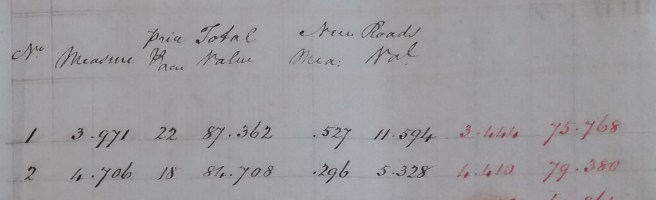 price Total New Roads
No Measure P acre Value Mea: Val.
1 3.971 22 87.362 .527 11.594 3.444 75.768
2 4.706 18 84.708 .296 5.328 4.410 79.380